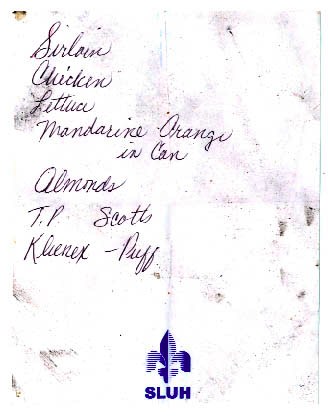 Sirloin
Chicken
Lettuce
Mandarine Orange
in Can
Almonds
T.P. Scotts
Kleenex - Puff
SLUH